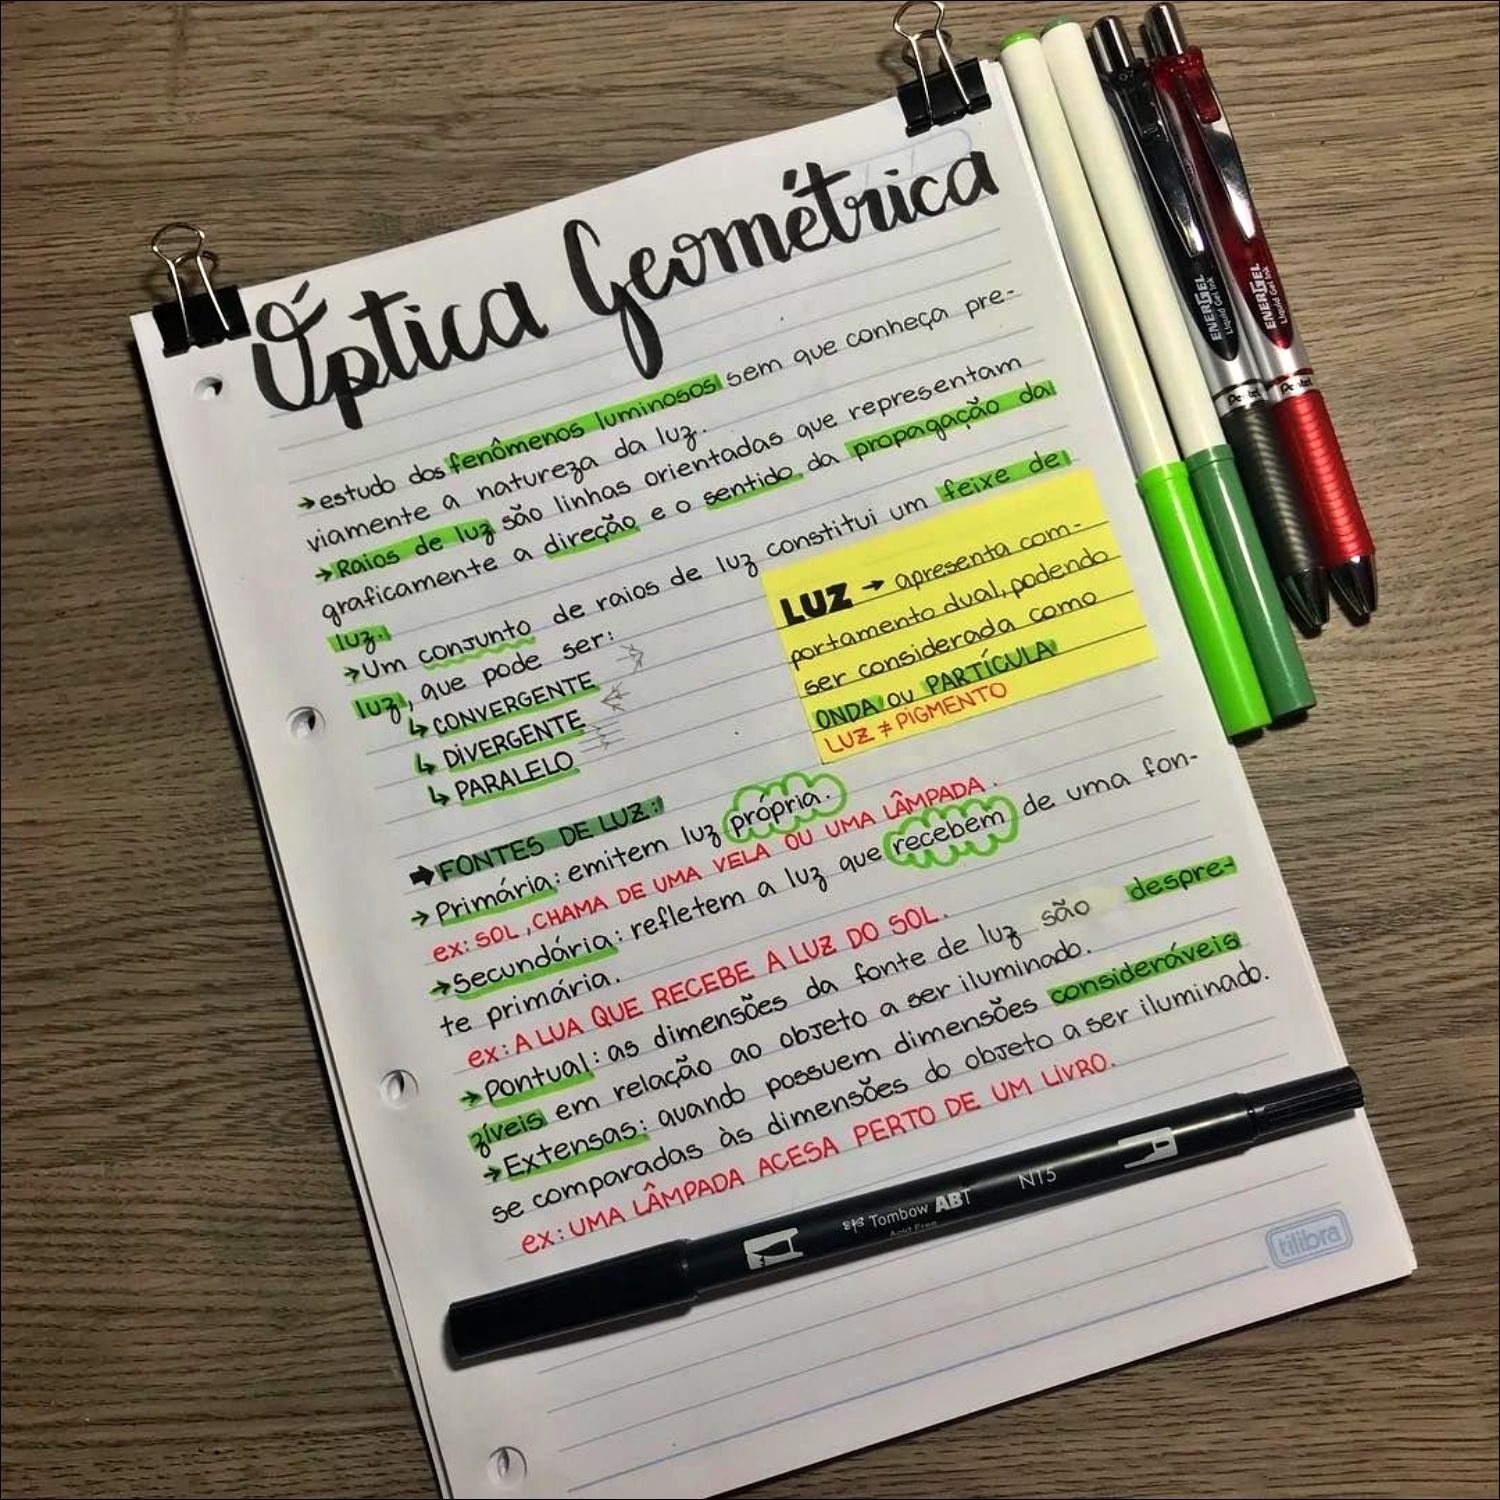 Óptica Geométrica
→estudo dos fenômenos luminosos sem que conheça pre-
viamente a natureza da luz.
→Raios de luz são linhas orientadas que representam
graficamente a direção e o sentido da propagação da
luz.
→Um conjunto de raios de luz constitui um feixe de
luz, que pode ser:
↳CONVERGENTE
↳DIVERGENTE
↳PARALELO
LUZ → apresenta com-
portamento dual, podendo
ser considerada como
ONDA ou PARTÍCULA
LUZ ≠ PIGMENTO
➡FONTES DE LUZ:
→Primária: emitem luz própria.
ex: SOL, CHAMA DE UMA VELA OU UMA LÂMPADA.
→Secundária: refletem a luz que recebem de uma fon-
te primária.
ex: A LUA QUE RECEBE A LUZ DO SOL.
→Pontual: as dimensões da fonte de luz são despre-
zíveis em relação ao objeto a ser iluminado.
→Extensas: quando possuem dimensões consideráveis
se comparadas às dimensões do objeto a ser iluminado.
ex: UMA LÂMPADA ACESA PERTO DE UM LIVRO.
Tombow ABT N15
Acid Free
tilibra
07
ENERGEL
Liquid Gel Ink
Pentel
ENERGEL
Liquid Gel Ink
Pentel